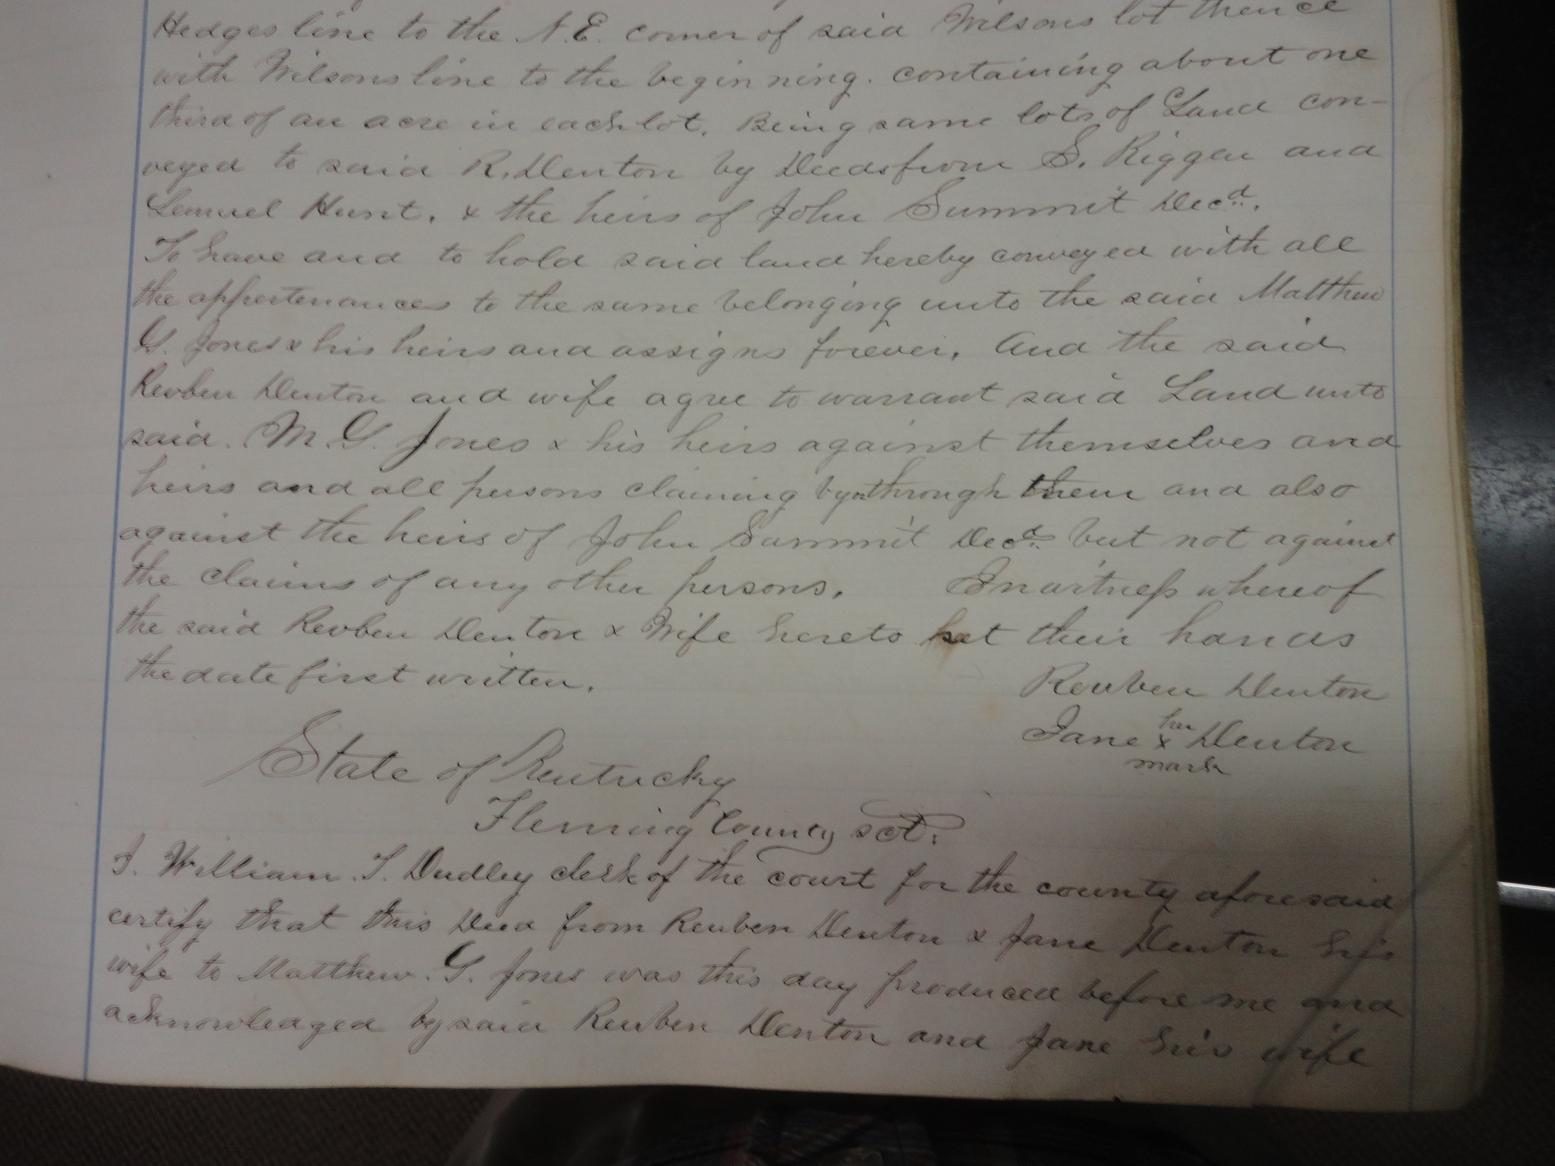 Hedges line to the N.E. corner of said Wilsons lot thence
with Wilsons line to the beginning. containing about one
third of an acre in each lot. Being same lots of Land con-
veyed to said R. Denton by Deeds from S. Riggen and
Lemuel Hunt, & the heirs of John Summit Decd.
To have and to hold said land hereby conveyed with all
the appertenances to the same belonging unto the said Matthew
G. Jones & his heirs and assigns forever. And the said
Reuben Denton and wife agree to warrant said Land unto
said. M G. Jones & his heirs against themselves and
heirs and all persons claiming by through them and also
against the heirs of John Summit Decd. but not against
the claims of any other persons. In witness whereof
the said Reuben Denton & Wife hereto set their hands
the date first written.
Reuben Denton
her
Jane x Denton
mark
State of Kentucky
Fleming County sct.
I. William T. Dudley clerk of the court for the county aforesaid
certify that this Deed from Reuben Denton & Jane Denton his
wife to Matthew. G. Jones was this day produced before me and
acknowledged by said Reuben Denton and Jane his wife